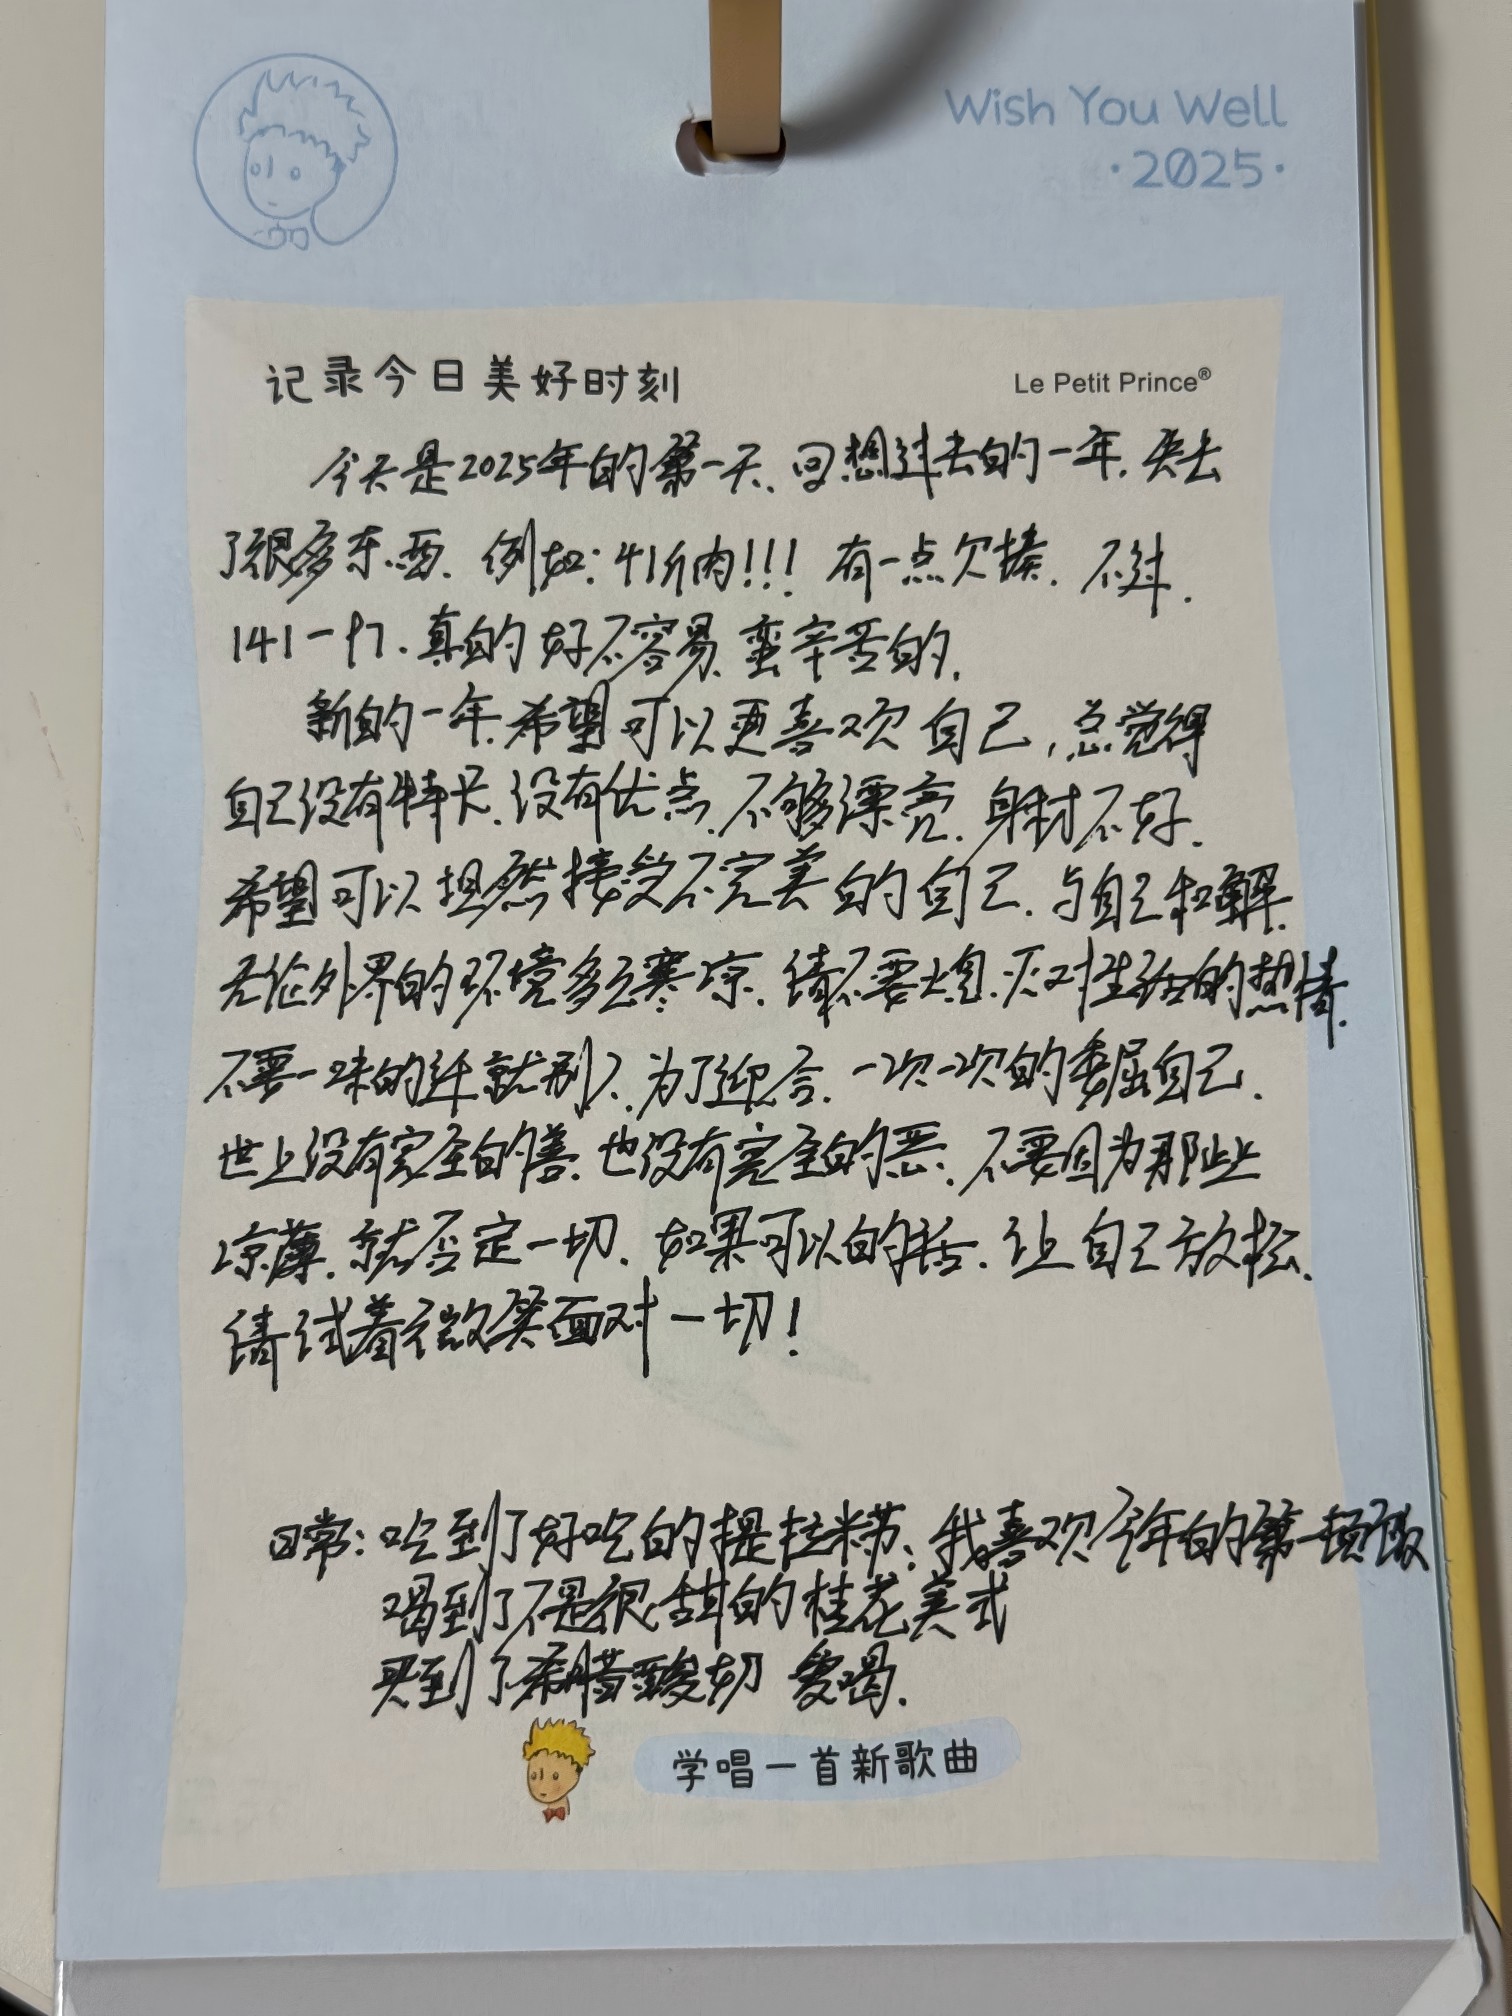 Wish You Well
·2025·
记录今日美好时刻
Le Petit Prince®
今天是2025年的第一天、回想过去的一年，失去
了很多东西、例如：41斤肉！！！有一点欠揍、不过、
141－97、真的好不容易、蛮辛苦的、
新的一年、希望可以更喜欢自己，总觉得
自己没有特长、没有优点、不够漂亮、身材不好、
希望可以坦然接受不完美的自己、与自己和解、
无论外界的环境多么寒凉、请不要熄灭对生活的热情、
不要一味的迁就别人、为了迎合、一次一次的委屈自己、
世上没有完全的善、也没有完全的恶、不要因为那些
凉薄、就否定一切、如果可以的话、让自己放松、
请试着微笑面对一切！
日常：吃到了好吃的提拉米苏、我喜欢今年的第一顿饭
喝到了不是很甜的桂花美式
买到了希腊酸奶 爱喝、
学唱一首新歌曲